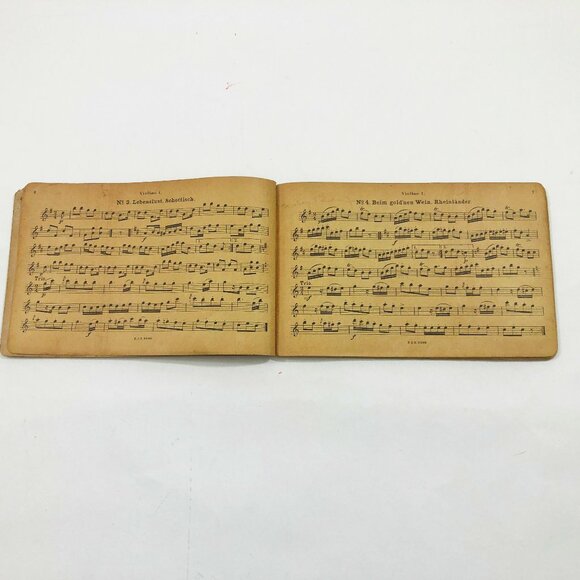 Violino I.
No 3. Lebenslust. Schottisch.
Trio.
Violino I.
No 4. Beim gold'nen Wein. Rheinländer
Trio.